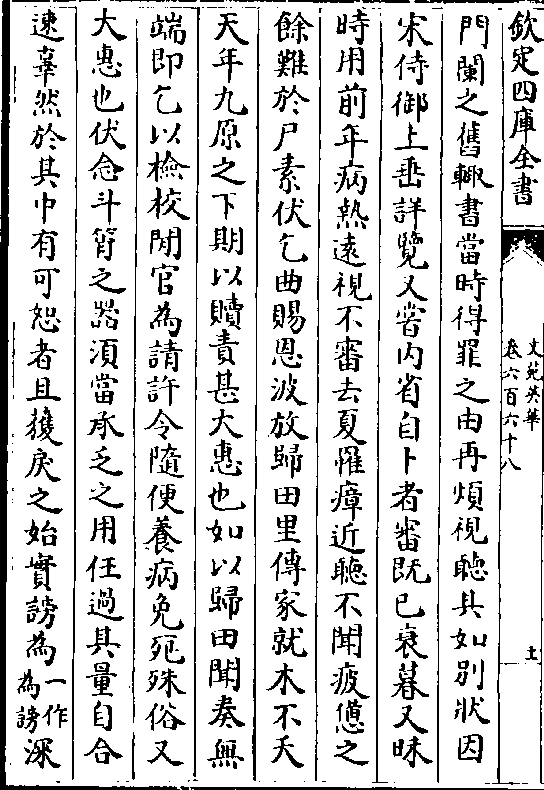 欽定四庫全書
文苑英華
卷六百六十八
十
門闌之舊輙書當時得罪之由再煩視聽具如別狀因
宋侍御上垂詳覽又嘗内省自卜者審既已衰暮又昧
時用前年病熱遠視不審去夏罹瘴近聽不聞疲憊之
餘難於尸素伏乞曲賜恩波放歸田里傳家就木不夭
天年九原之下期以贖責甚大惠也如以歸田聞奏無
端即乞以檢校閒官為請許令隨便養病免死殊俗又
大惠也伏念斗筲之器須當承乏之用任過其量自合
速辜然於其中有可恕者且獲戾之始實謗為一作為謗深